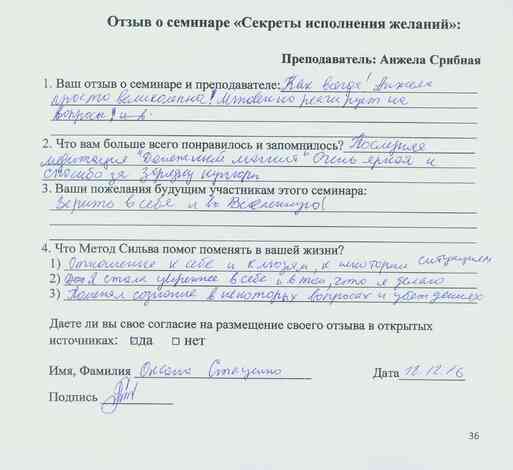 Отзыв о семинаре «Секреты исполнения желаний»:
Преподаватель: Анжела Срибная
1. Ваш отзыв о семинаре и преподавателе: Как всегда! Анжела
просто великолепна! Мгновенно реагирует на
вопросы!
2. Что вам больше всего понравилось и запомнилось? Последняя
медитация "Денежный магнит" Очень яркая и
спасибо за зарядку купюры
3. Ваши пожелания будущим участникам этого семинара:
Верить в себя и во Вселенную!
4. Что Метод Сильва помог поменять в вашей жизни?
1) Отношение к себе и к людям, к некоторым ситуациям
2) Я стала увереннее в себе и в том, что я делаю
3) Поменял сознание в некоторых вопросах и убеждениях
Даете ли вы свое согласие на размещение своего отзыва в открытых
источниках: да нет
Имя, Фамилия Оксана Стаценко Дата 12.12.16
Подпись
36